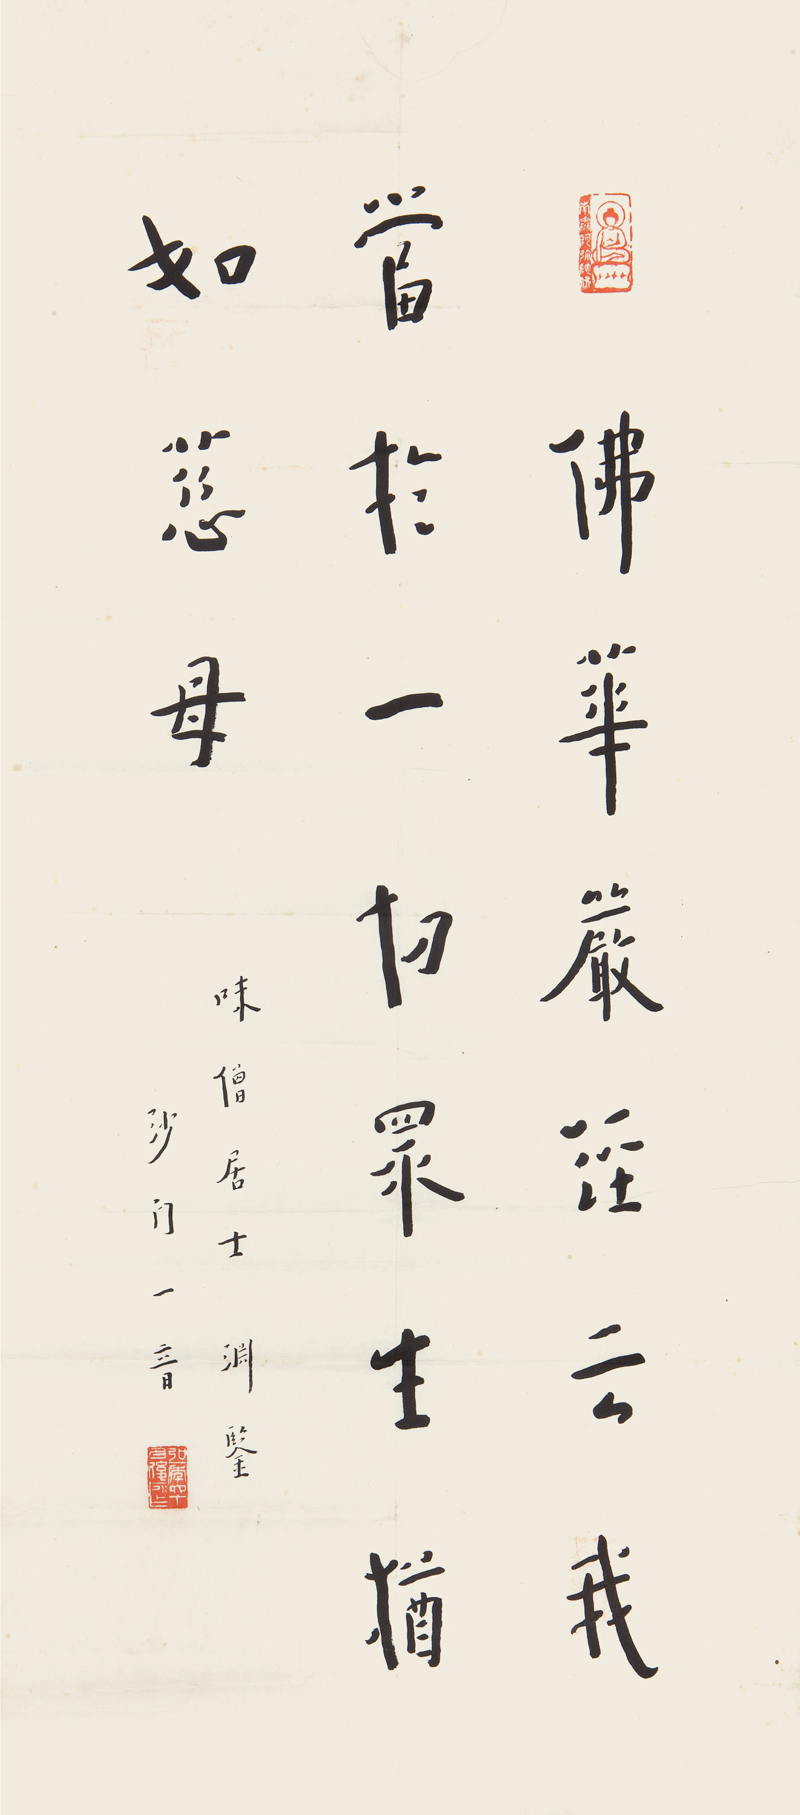 佛華嚴經云我
當於一切眾生猶
如慈母
味僧居士淵鑒
沙門一音